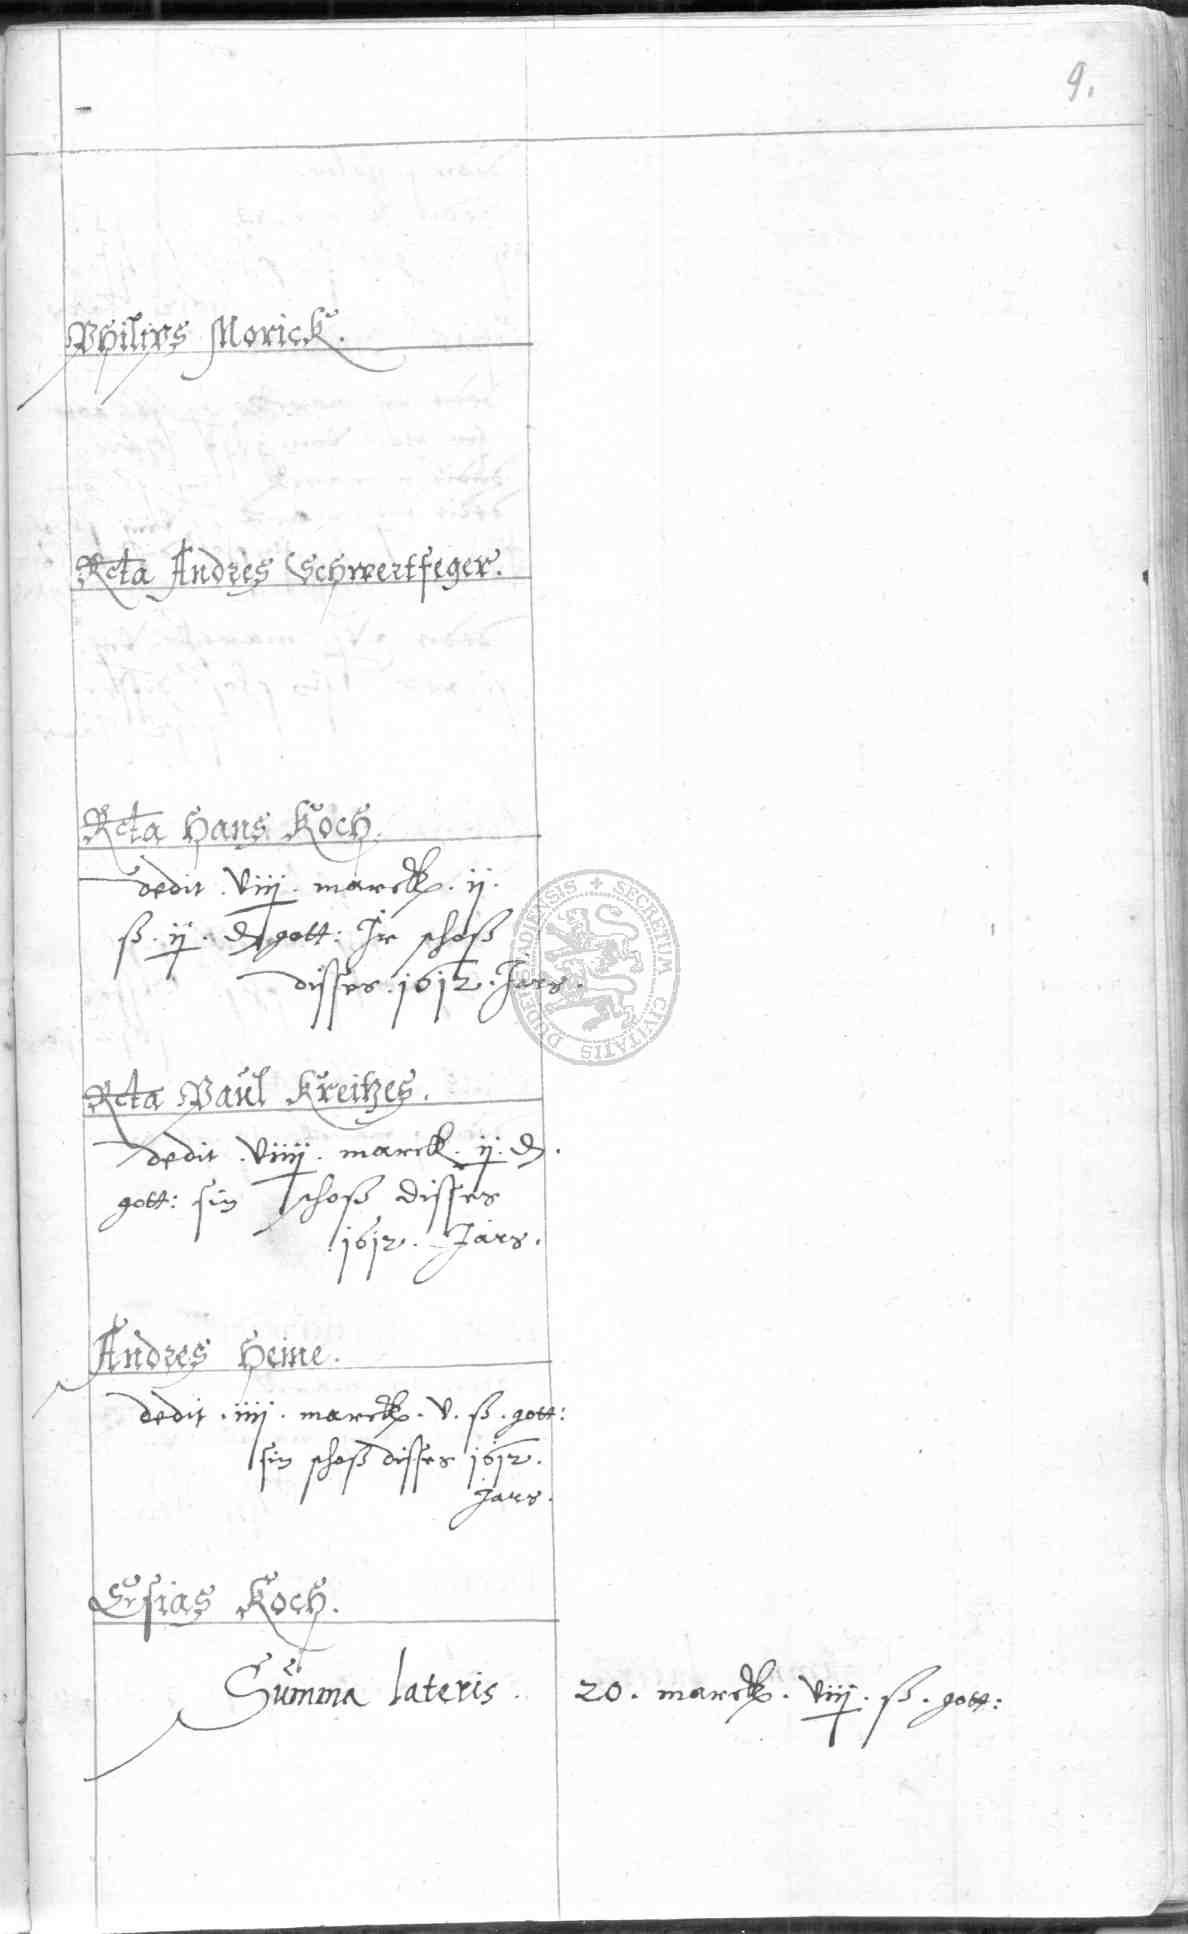 9.
Philips Morick.
Rcta Andres Schwertfeger.
Rcta Hans Koch.
dedit . viij . marck . ij .
ß . ij . ₰ gott: Ir schoß
disses . 1612 . Jars .
Rcta Paul Kreitzes .
dedit . viiij . marck . ij . ₰ .
gott: sin schoß disses
1612 . Jars .
Andres Heine .
dedit . iiij . marck . v . ß . gott:
sin schoß disses 1612 .
Jars .
Esias Koch .
Summa lateris . 20 . marck . viij . ß . gott:
SECRETUM CIVITATIS DUDERSTADIENSIS